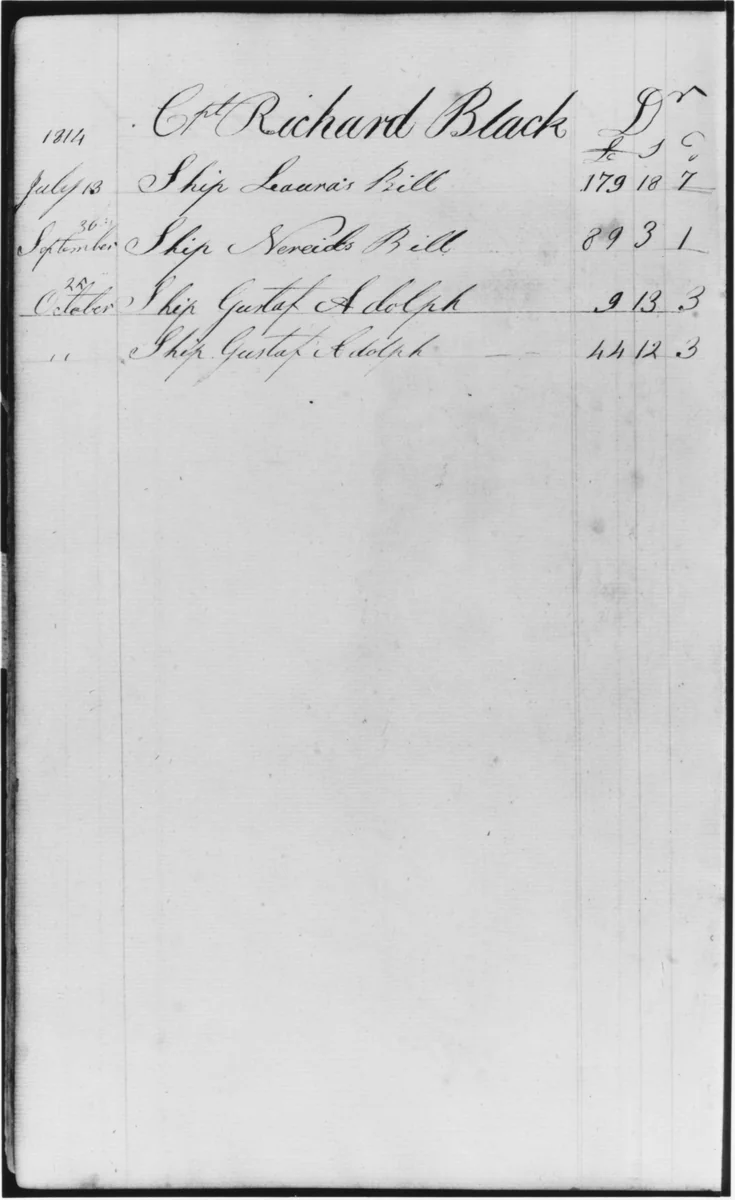 Cpt Richard Black Dr
1814 £ s d
July 13 Ship Laura's Bill 179 18 7
September 30 Ship Nereids Bill 89 3 1
October Ship Gustaf Adolph 9 13 3
" Ship Gustaf Adolph 44 12 3